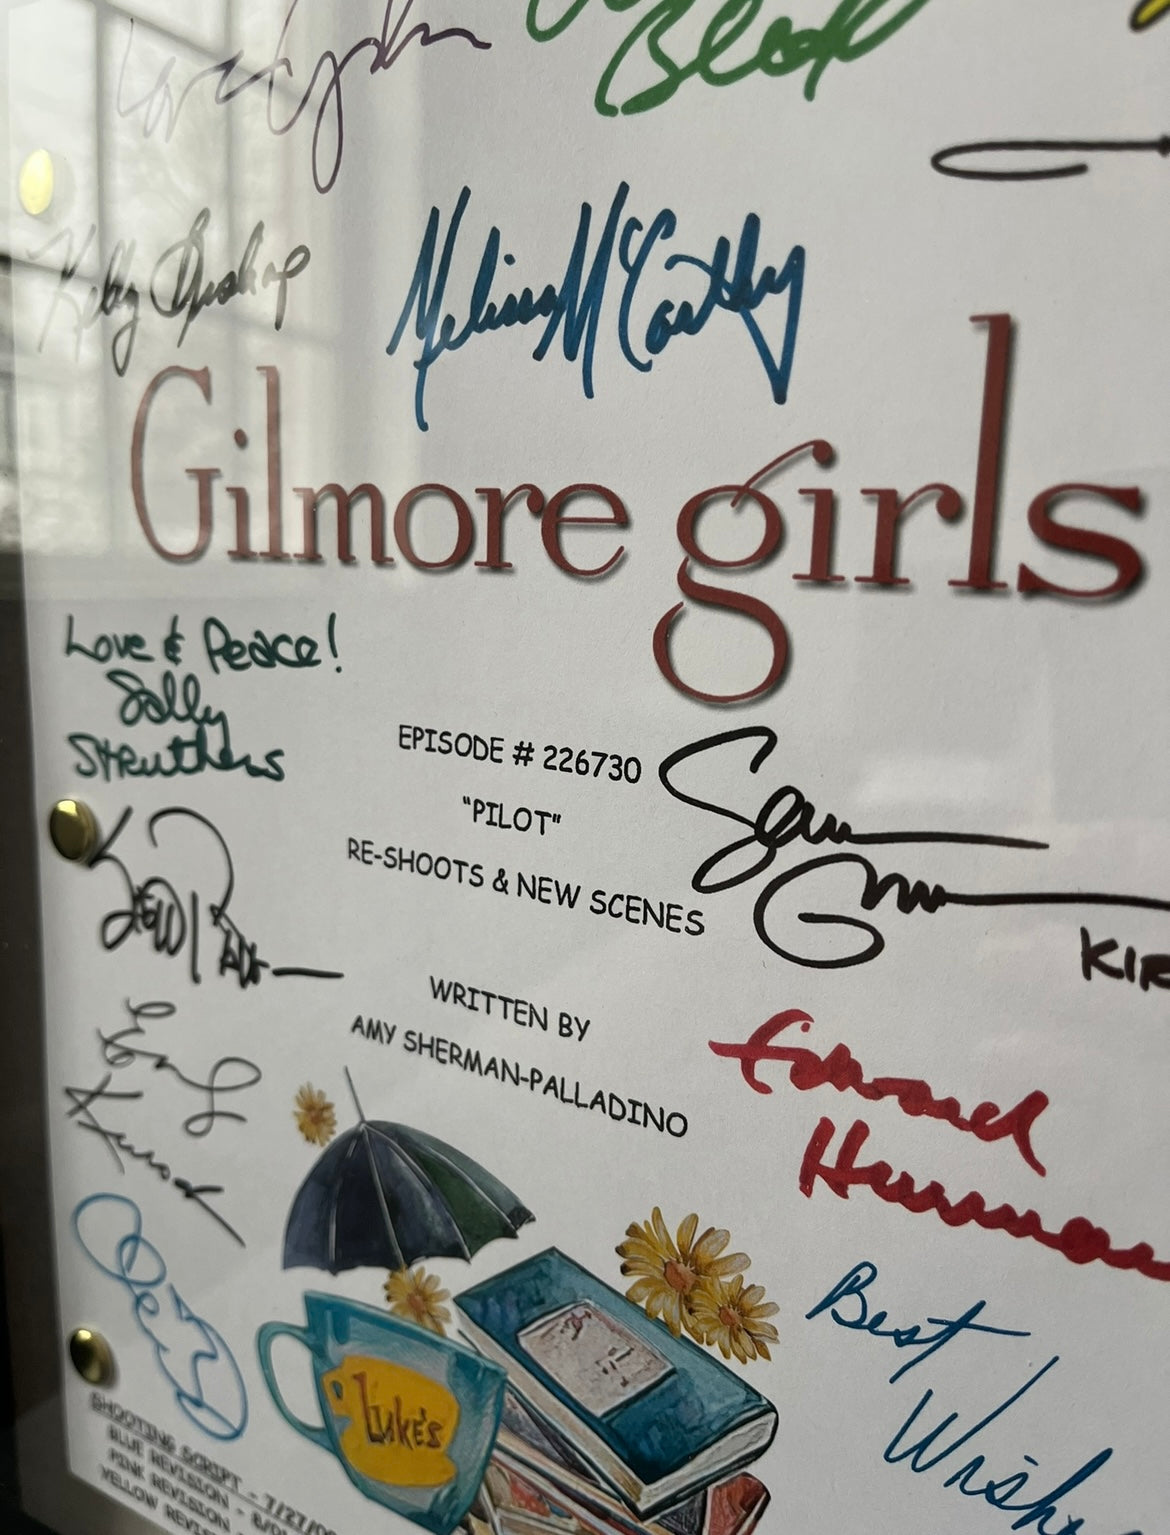 Love
Bledel
Kelly Bishop
Melissa McCarthy
Gilmore girls
Love & Peace!
Sally
Struthers
EPISODE # 226730
"PILOT"
RE-SHOOTS & NEW SCENES
Sean
Gunn
KIR
WRITTEN BY
AMY SHERMAN-PALLADINO
Edward
Herrmann
Best
Wishes
LUKE'S
SHOOTING SCRIPT - 7/27/0
BLUE REVISION - 8/0
PINK REVISION -
YELLOW REVIS